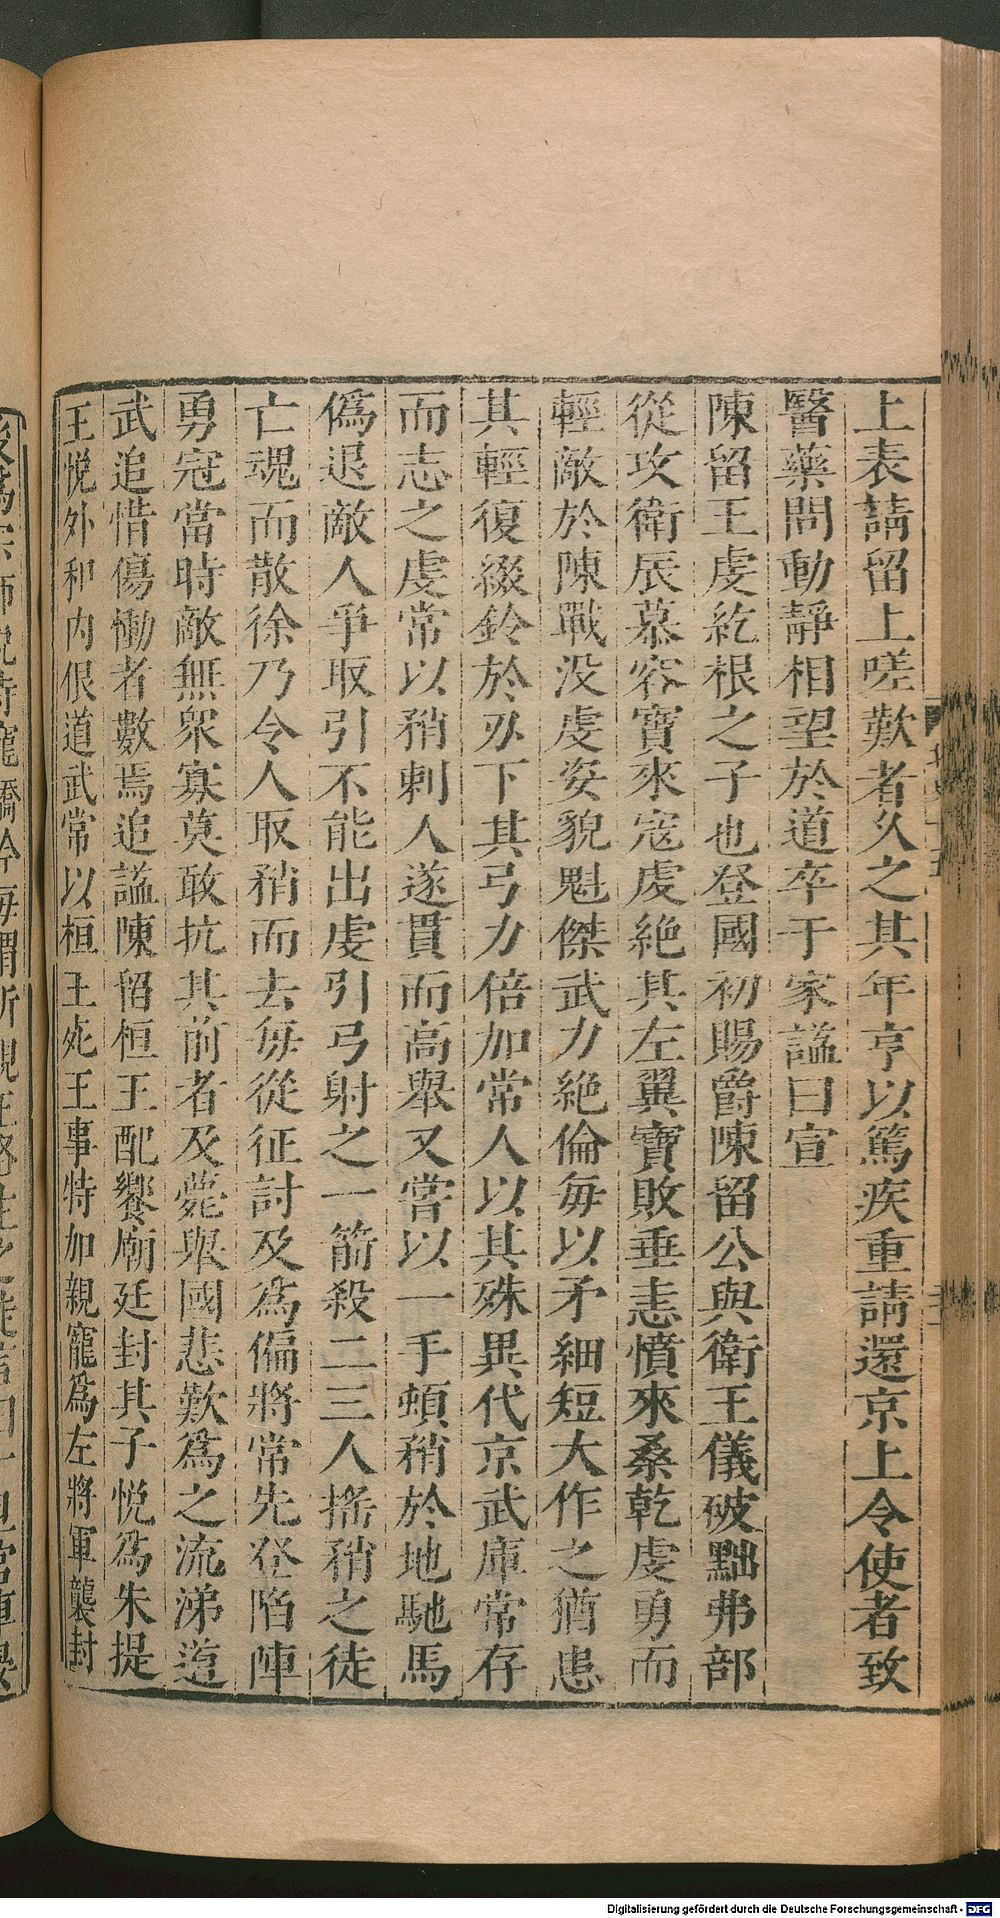 上表請留上嗟歎者久之其年亨以篤疾重請還京上令使者致
醫藥問動靜相望於道卒于家謚曰宣
陳留王虔紇根之子也登國初賜爵陳留公與衛王儀破黜弗部
從攻衛辰慕容寶來寇虔絶其左翼寶敗垂恚憤來桑乾虔勇而
輕敵於陳戰没虔姿貌魁傑武力絶倫毎以矛細短大作之猶患
其輕復綴鈴於刃下其弓力倍加常人以其殊異代京武庫常存
而志之虔常以矟刺人遂貫而高舉又嘗以一手頓矟於地馳馬
僞退敵人爭取引不能出虔引弓射之一箭殺二三人搖矟之徒
亡魂而散徐乃令人取矟而去毎從征討及爲偏將常先登陷陣
勇冠當時敵無衆寡莫敢抗其前者及薨舉國悲歎爲之流涕道
武追惜傷慟者數焉追謚陳留桓王配饗廟廷封其子悅爲朱提
王悅外和内佷道武常以桓王死王事特加親寵爲左將軍襲封
Digitalisierung gefördert durch die Deutsche Forschungsgemeinschaft - DFG